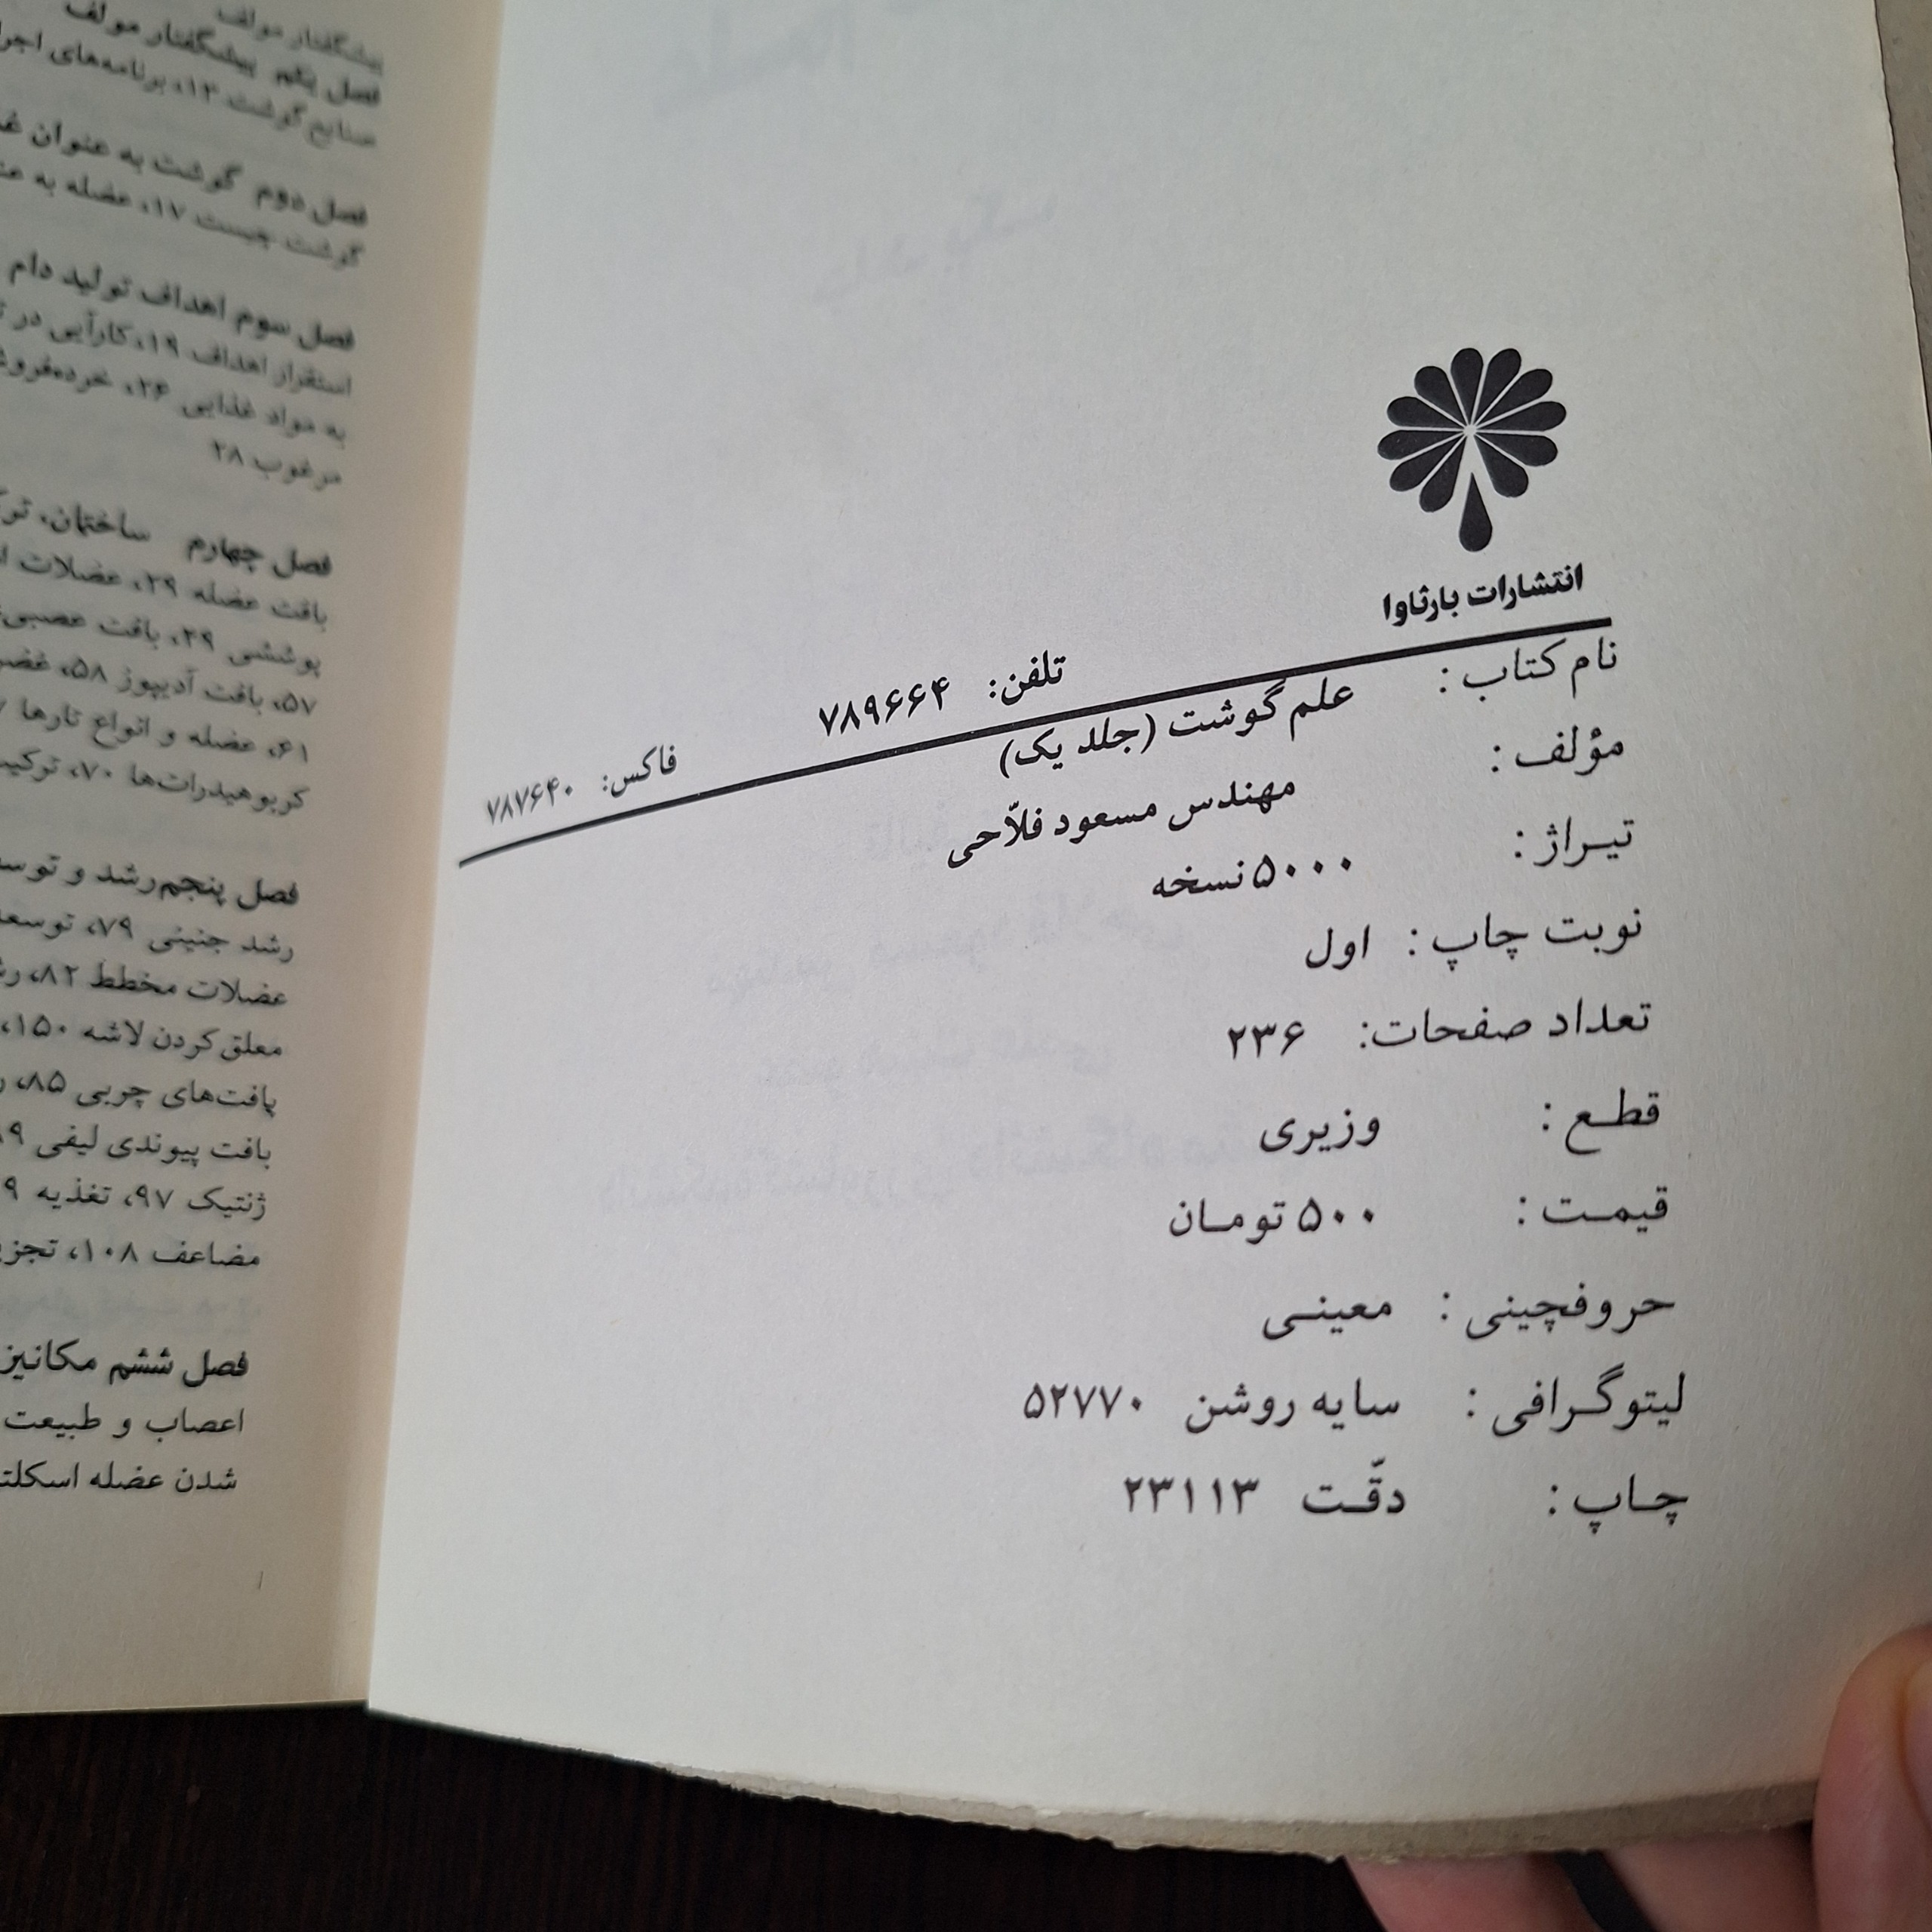 انتشارات بارثاوا
تلفن: ۷۸۹۶۶۴ فاکس: ۷۸۷۶۴۰
نام کتاب : علم گوشت (جلد یک)
مؤلف : مهندس مسعود فلاّحی
تیـراژ : ۵۰۰۰ نسخه
نوبت چاپ : اول
تعداد صفحات: ۲۳۶
قطـع : وزیری
قیمـت : ۵۰۰ تومـان
حروفچینی : معینـی
لیتوگـرافی : سایه روشن ۵۲۷۷۰
چـاپ : دقّـت ۲۳۱۱۳
پیشگفتار مولف
فصل یکم پیشگفتار مولف
صنایع گوشت ۱۳، برنامه‌های
فصل دوم گوشت به عنوان
گوشت چیست ۱۷، عضله به
فصل سوم اهداف تولید دام
استقرار اهداف ۱۹، کارآیی در
به مواد غذایی ۲۶،
مرغوب ۲۸
فصل چهارم ساختمان،
بافت عضله ۲۹، عضلات
پوششی ۴۹، بافت عصبی
۵۷، بافت آدیپوز ۵۸،
۶۱، عضله و انواع تارها
کربوهیدرات‌ها ۷۰،
فصل پنجم رشد و
رشد جنینی ۷۹،
عضلات مخطط ۸۲،
معلق کردن لاشه ۱۵۰،
بافت‌های چربی ۸۵،
بافت پیوندی لیفی
ژنتیک ۹۷، تغذیه
مضاعف ۱۰۸،
فصل ششم
اعصاب و طبیعت
شدن عضله